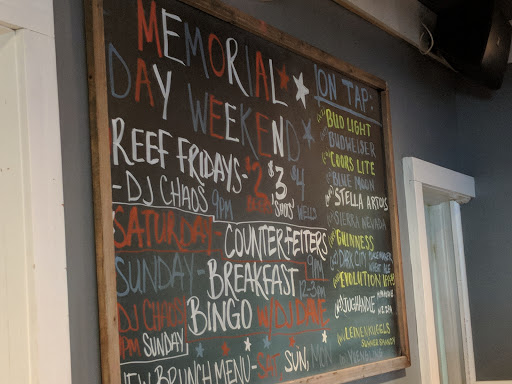 MEMORIAL
DAY WEEKEND
REEF FRIDAYS-
$2 $3 $4
-DJ CHAOS 9PM
WELLS
SATURDAY- COUNTERFEITERS
9PM
SUNDAY- BREAKFAST
BINGO W/DJ DAVE
12-3PM
DJ CHAOS
9PM SUNDAY
NEW BRUNCH MENU- SAT, SUN, MON
ON TAP:
BUD LIGHT
BUDWEISER
COORS LITE
BLUE MOON
STELLA ARTOIS
SIERRA NEVADA
GUINNESS
DARK CITY
WHEAT ALE
EVOLUTION
JUGHANDLE
LEINENKUGELS
SUMMER SHANDY
YUENGLING